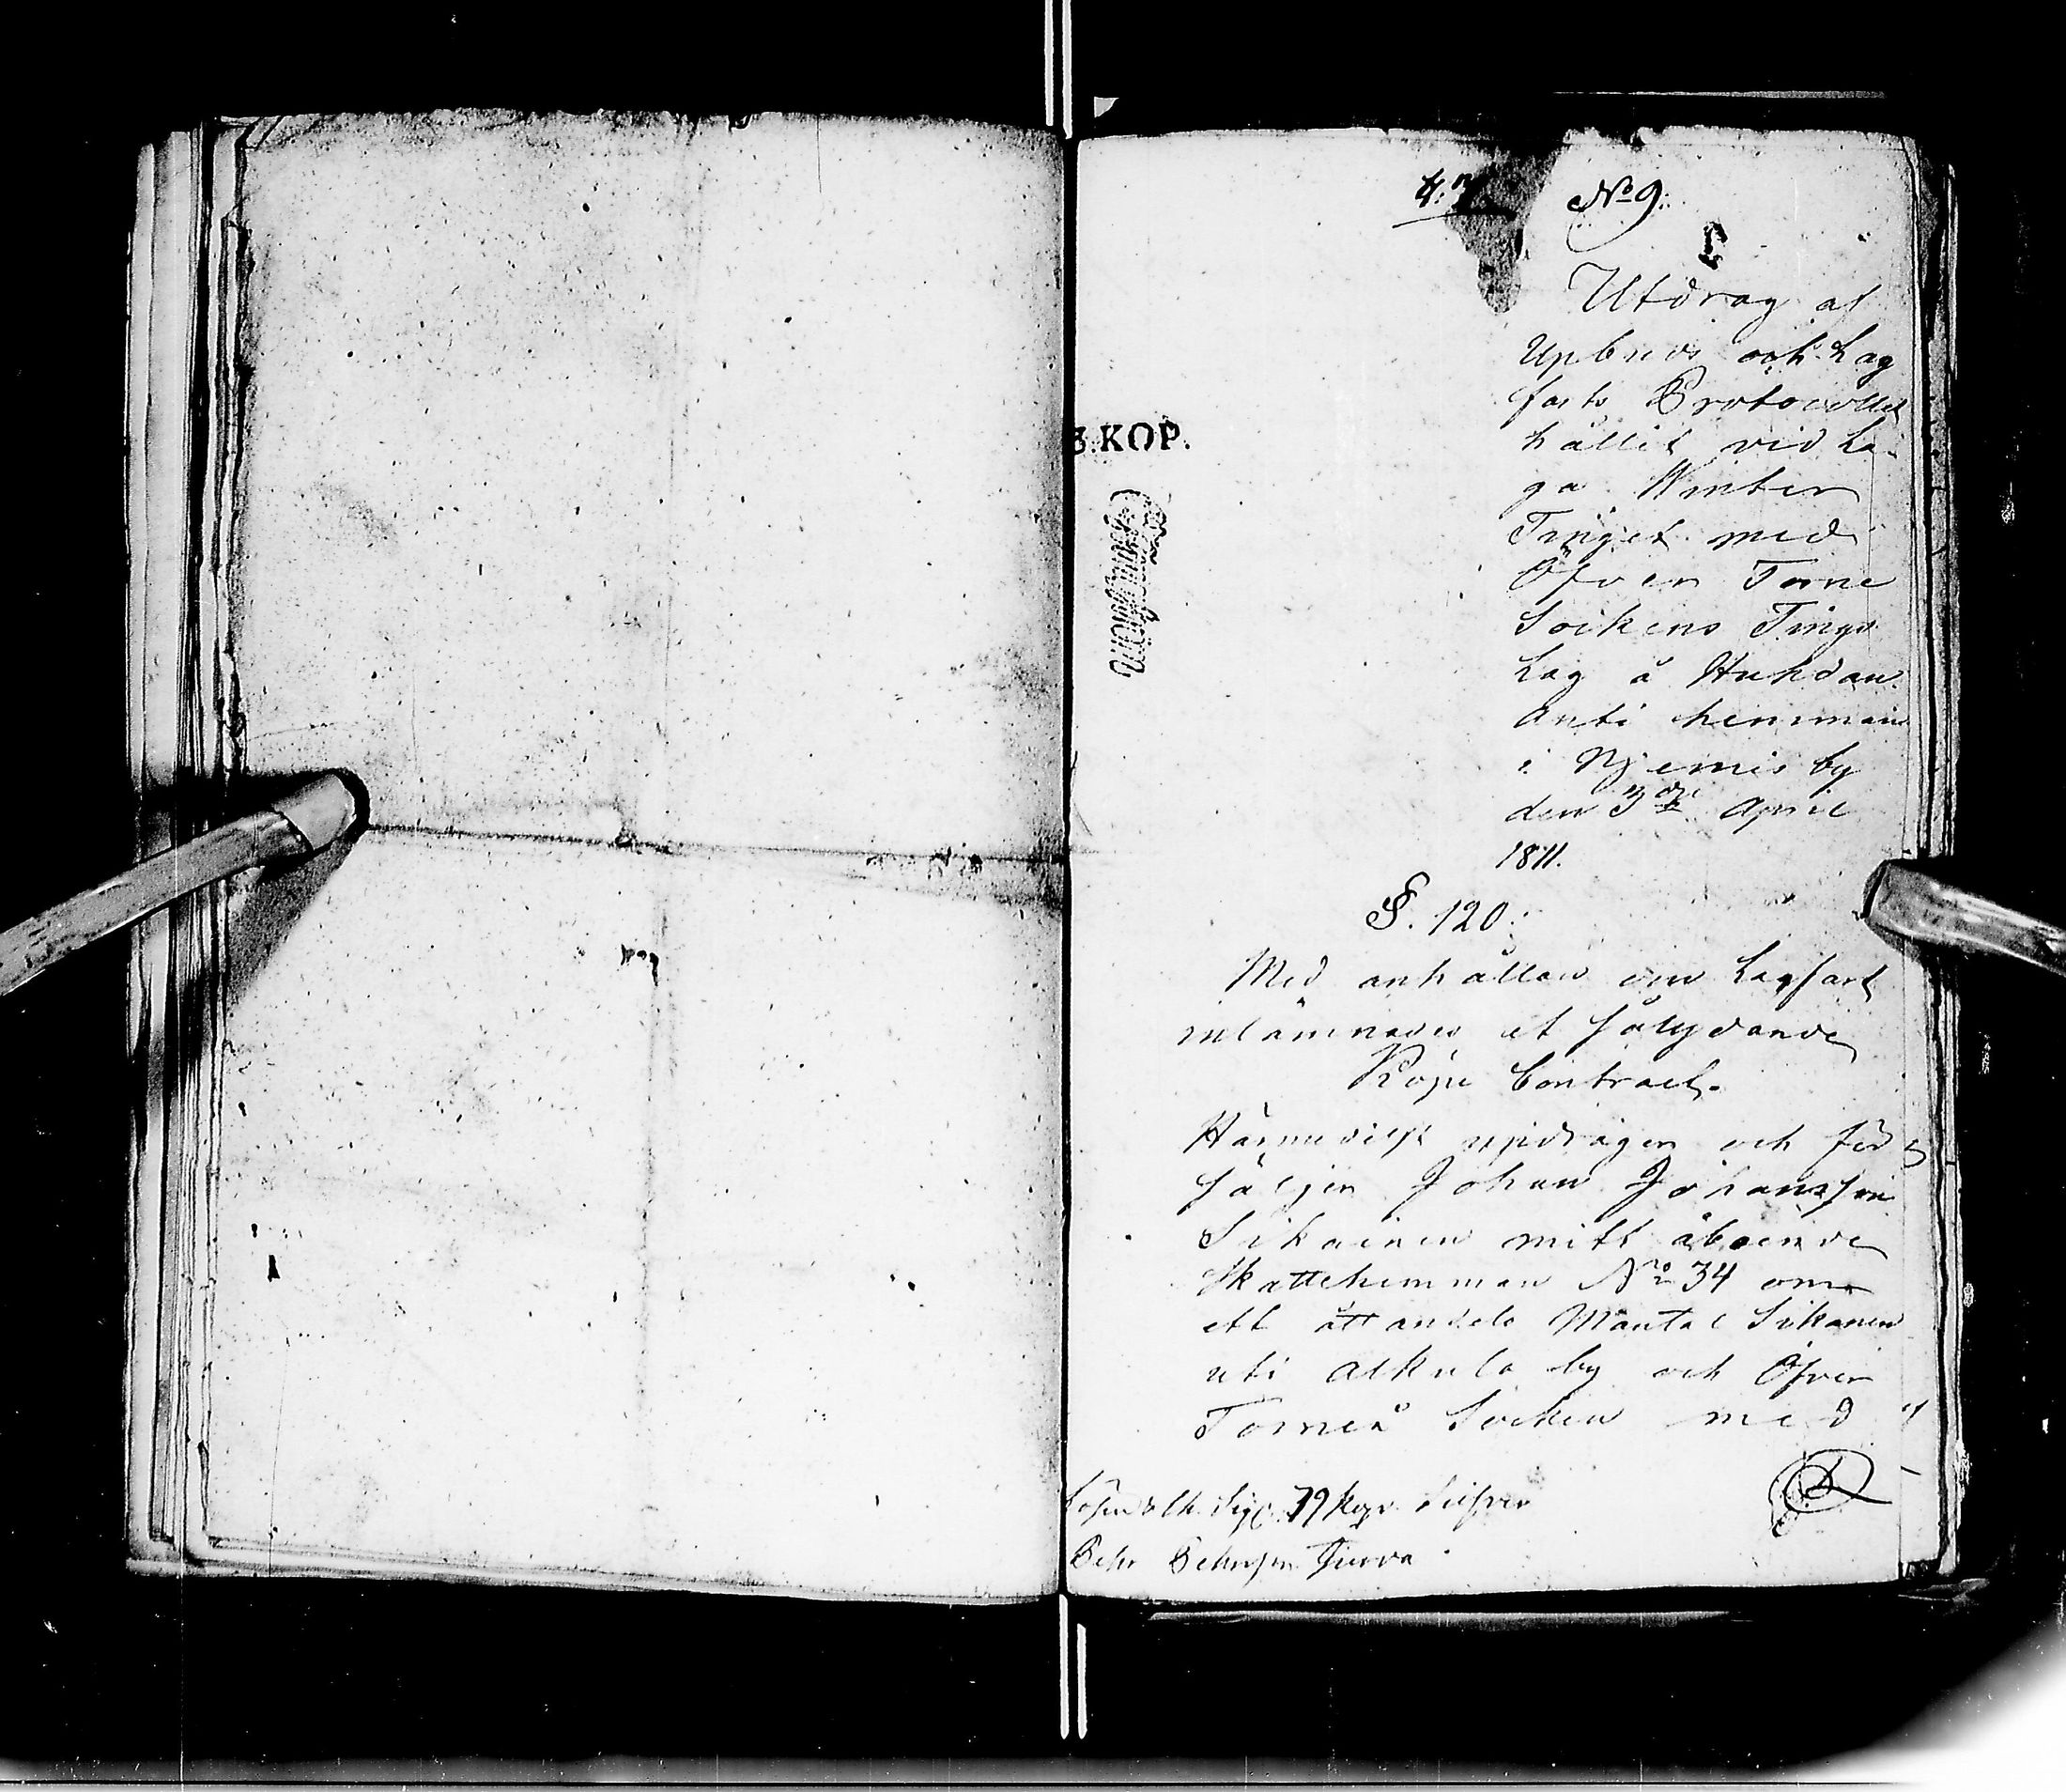 No 9.
Utdrag af
Upbuds och Lag
farts Protocollet
hållit vid La-
ga Winter
Tinget med
Öfver Torne
Sockens Tings
Lag å Huhdan
anti hemman
i Njemis by
den 3die April
1811.
§. 120.
Med anhållan om Lagfart
inlämnades et sålydande
Köpe Contract.
Härmedelst updrager och för
säljer Johan Johansson
Sikainen mitt åboende
skattehemman No 34 om
ett åttondels Mantal Sikanen
uti Alkula by och Öfver
Torneå Socken med
79 kop. Silfver
Pehr Pehrsson Jurva
8.KOP.